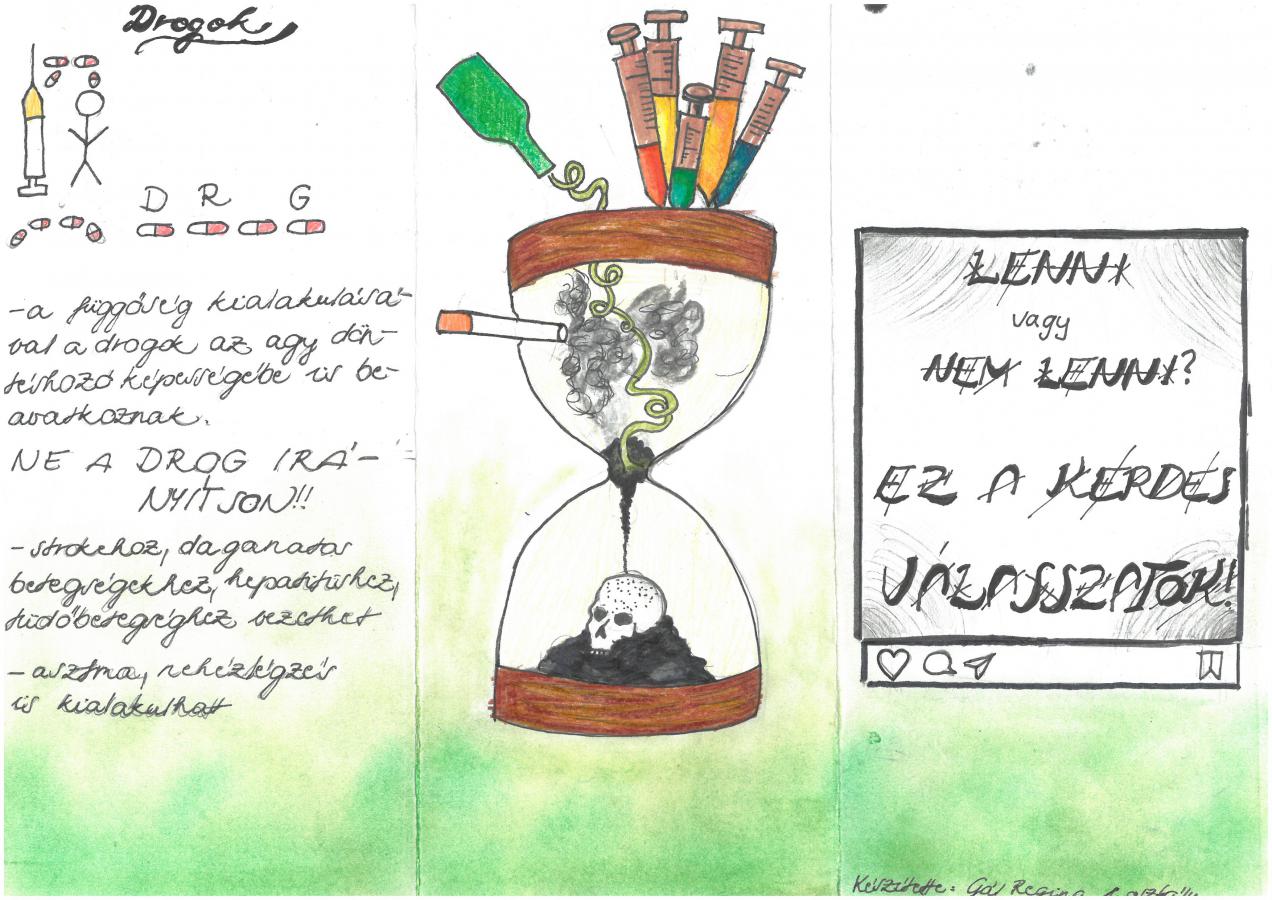 Drogok
D R G
-a függőség kialakulásá-
val a drogok az agy dön-
téshozó képességébe is be-
avatkoznak.
NE A DROG IRÁ-
NYÍTSON!!
-strokehoz, daganatos
betegségekhez, hepatitishez,
tüdőbetegséghez vezethet
-asztma, nehézlégzés
is kialakulhat
LENNI
vagy
NEM LENNI?
EZ A KÉRDÉS
VÁLASSZATOK!
Készítette: Gál Regina